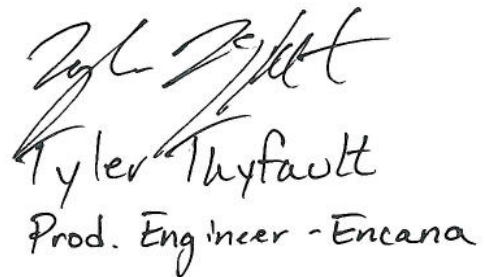 Tyler Thyfault
Prod. Engineer - Encana